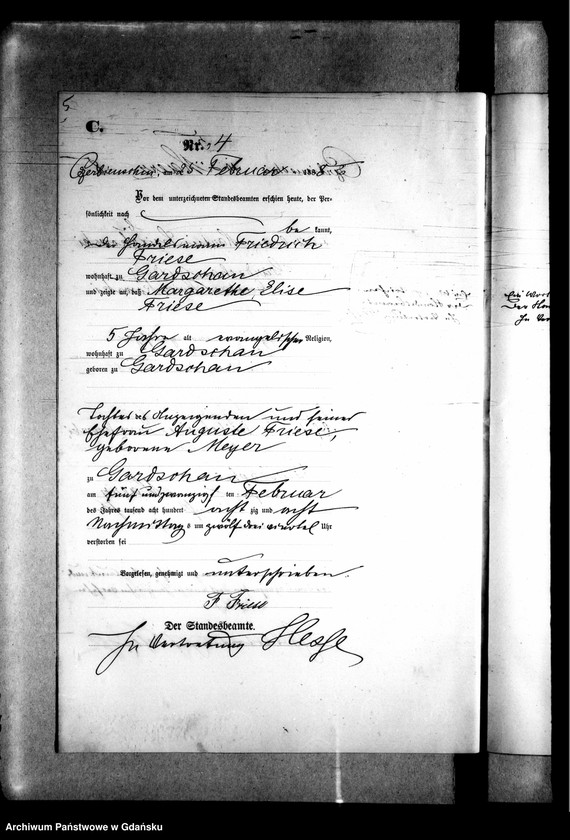 5
C.
Nr. 4
Czerbienschin, am 25 Februar 188
Vor dem unterzeichneten Standesbeamten erschien heute, der Per-
sönlichkeit nach
be kannt,
der Handelsmann Friedrich
Friese
wohnhaft zu Gardschau
und zeigte an, daß Margarethe Elise
Friese
5 Jahre alt evangelischer Religion,
wohnhaft zu Gardschau
geboren zu Gardschau
Tochter des Anzeigenden und seiner
Ehefrau Auguste Friese,
geborene Meyer
zu Gardschau
am fünf und zwanzigsten Februar
des Jahres tausend acht hundert acht zig und acht
Nachmittags um zwölf drei viertel Uhr
verstorben sei
Vorgelesen, genehmigt und unterschrieben.
F Friese
Der Standesbeamte.
In Vertretung Hesse
Der
In
Archiwum Państwowe w Gdańsku